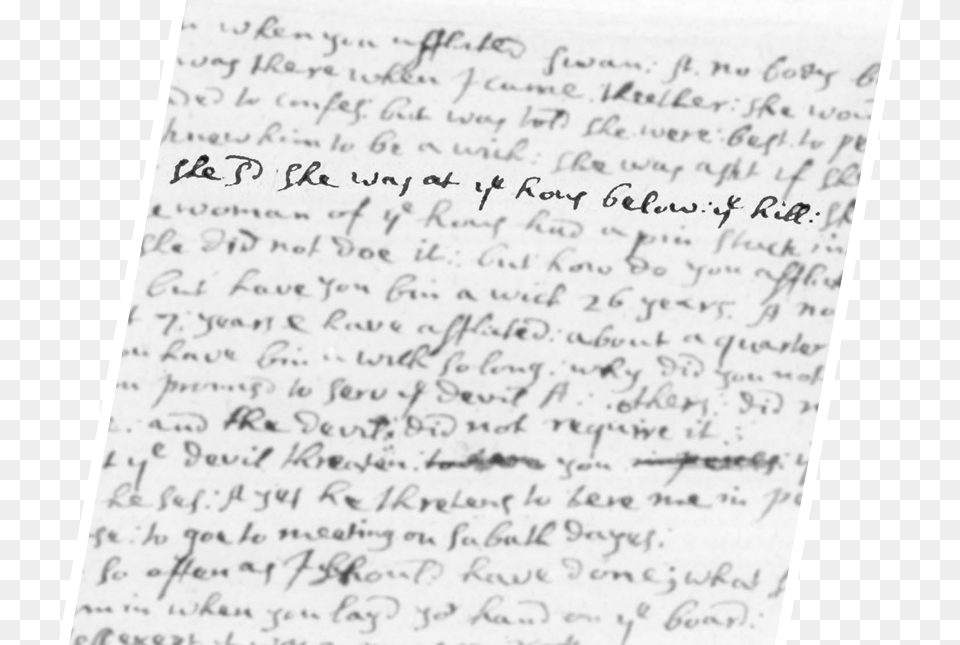 when you afflicted Swan: A. no body b
was there when I came thether: she wou
ded to confes. but was told she were: best. to pe
knew him to be a wich: she was askt if she
she sd she was at ye hous below: ye hill: sh
e woman of ye hous had a pin stuck in
she did not doe it: but how do you afflict
but have you bin a wich 26 years. A no
7. years & have afflicted: about a quarter
ou have bin a wich so long. why did you not
promisd to serv ye devil A: others: did n
and the devil: did not require it:
t ye devil threaten you
he ses: A yes he thretens to tere me in pe
se: to goe to meeting on sabath dayes:
so often as I should have done; what
when you layd yor hand on ye board: